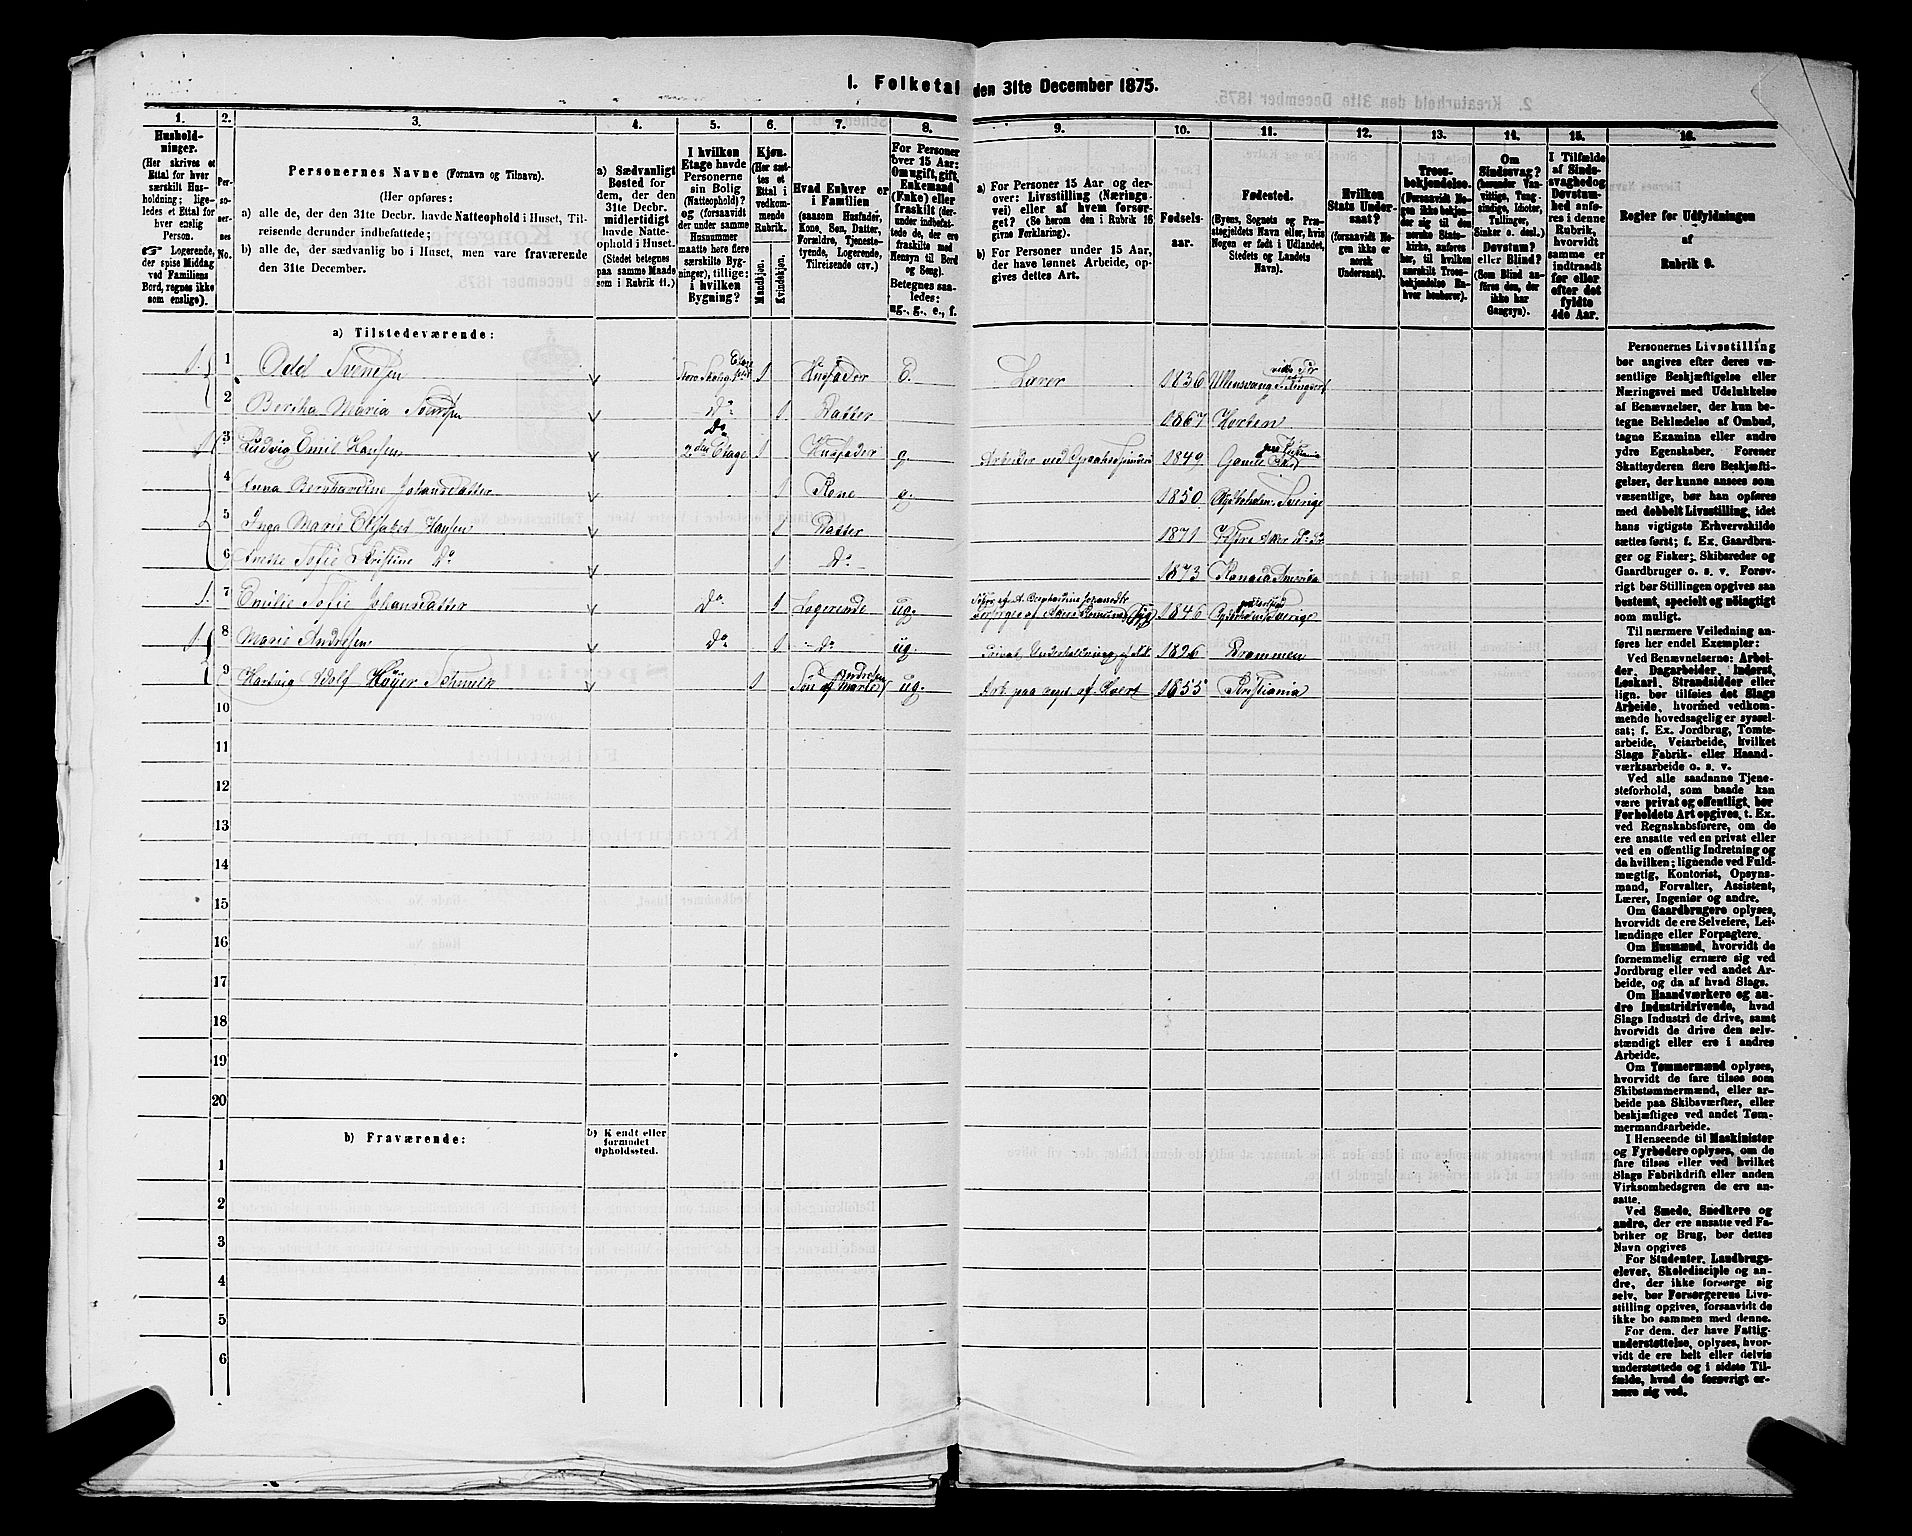 1. Folketal den 31te December 1875.
1. 2. 3. 4. 5. 6. 7. 8. 9. 10. 11. 12. 13. 14. 15. 16.
Hushold-
ninger.
(Her skrives et
Ettal for hver
særskilt Hus-
holdning; lige-
ledes et Ettal for
hver enslig
Person.
Logerende,
der spise Middag
ved Familiens
Bord, regnes ikke
som enslige).
Per-
so-
ner-
nes
No.
Personernes Navne (Fornavn og Tilnavn).
(Her opføres:
a) alle de, der den 31te Decbr. havde Natteophold i Huset, Til-
reisende derunder indbefattede;
b) alle de, der sædvanlig bo i Huset, men vare fraværende
den 31te December.
a) Sædvanligt
Bosted for
dem, der den
31te Decbr.
midlertidigt
havde Natte-
ophold i Huset.
(Stedet betegnes
paa samme Maade
som i Rubrik 11.)
I hvilken
Etage havde
Personerne
sin Bolig
(Natteophold)?
og (forsaavidt
der under samme
Husnummer
maatte høre flere
særskilte Byg-
ninger), tillige:
i hvilken
Bygning?
Kjøn.
(Her sæt-
tes et
Ettal i
vedkom-
mende
Rubrik.
Mandkjøn.
Kvindekjøn.
Hvad Enhver er
i Familien
(saasom Husfader,
Kone, Søn, Datter,
Forældre, Tjeneste-
tyende, Logerende,
Tilreisende osv.)
For Personer
over 15 Aar:
Om ugift, gift,
Enkemand
(Enke) eller
fraskilt (der-
under indbefat-
tede de, der ere
fraskilte med
Hensyn til Bord
og Seng).
Betegnes saa-
ledes:
ug., g., e., f.
a) For Personer 15 Aar og der-
over: Livsstilling (Nærings-
vei) eller af hvem forsør-
get? (Se herom den i Rubrik 16
givne Forklaring).
b) For Personer under 15 Aar,
der have lønnet Arbeide, op-
gives dettes Art.
Fødsels-
aar.
Fødested.
(Byens, Sognets og Præ-
stegjeldets Navn eller, hvis
Nogen er født i Udlandet,
Stedets og Landets
Navn).
Hvilken
Stats Under-
saat?
(forsaavidt No-
gen ikke er
norsk
Undersaat).
Troes-
bekjendelse.
(Forsaavidt No-
gen ikke bekjen-
der sig til den
norske Stats-
kirke, anføres
her, til hvilken
særskilt Troes-
bekjendelse En-
hver henhører).
Om
Sindssvag?
(herunder Van-
vittige, Tung-
sindige, Idioter,
Tullinger,
Sinker o. desl.)
Døvstum?
eller Blind?
(Som Blind an-
føres den, der
ikke har
Gangsyn).
I Tilfælde
af Sinds-
svaghed og
Døvstum-
hed anfø-
res i denne
Rubrik,
hvorvidt
samme er
indtraadt
før eller
efter det
fyldte
4de Aar.
Regler for Udfyldningen
af
Rubrik 9.
a) Tilstedeværende:
1. 1 Odd Svensen 1 Husfader E. Lærer 1836
2 Bertha Maria Svensen Do 1 Datter 1867 Horten
1 3 Ludvig Emil Hansen Do 2den Etage 1 Husfader g. 1849
4 Anna Bernhardine Johansdatter 1 Kone g. 1850 Sverige
5 Inga Marie Elisabet Hansen 1 Datter 1871
6 Anette Sofie Kristine Do 1 Do 1873 Kanada Amerika
1. 7 Emilie Sofie Johansdatter Do 1 Logerende ug. 1846 Sverige
1. 8 Marie Andresen Do 1 Do ug. 1826 Drammen
9 Hartvig Adolf Høyer 1 Søn af Marie Andresen ug. 1855 Kristiania
10
11
12
13
14
15
16
17
18
19
20
b) Fraværende:
b) Kendt eller
formodet
Opholdssted.
1
2
3
4
5
6
Personernes Livsstilling
bør angives efter deres væ-
sentlige Beskjæftigelse eller
Næringsvei med Udelukkelse
af Benævnelser, der kun be-
tegne Beklædelse af Ombud,
tagne Examina eller andre
ydre Egenskaber. Forener
Skatteyderen flere Beskjæfti-
gelser, der kunne ansees som
væsentlige, bør han opføres
med dobbelt Livsstilling, idet
hans vigtigste Erhvervskilde
sættes først; f. Ex. Gaardbru-
ger og Fisker; Skibsreder og
Gaardbruger o. s. v. Forøv-
rigt bør Stillingen opgives saa
bestemt, specielt og nøiagtigt
som muligt.
Til nærmere Veiledning an-
føres her endel Exempler:
Ved Benævnelserne: Arbei-
der, Dagarbeider, Inderst,
Løskarl, Strandsidder eller
lign. bør tilføies det Slags
Arbeide, hvormed vedkom-
mende hovedsagelig er syssel-
sat; f. Ex. Jordbrug, Tomte-
arbeide, Veiarbeide, hvilket
Slags Fabrik- eller Haand-
værksarbeide o. s. v.
Ved alle saadanne Tjene-
steforhold, som baade kan
være privat og offentligt, bør
Forholdets Art opgives, t. Ex.
ved Regnskabsførere, om de
ere ansatte ved en privat eller
ved en offentlig Indretning og
da hvilken; lignende ved Fuld-
mægtig, Kontorist, Opsyns-
mand, Forvalter, Assistent,
Lærer, Ingeniør og andre.
Om Gaardbrugere oplyses,
hvorvidt de ere Selveiere, Lei-
lændinge eller Forpagtere.
Om Husmænd, hvorvidt de
fornemmelig ernære sig ved
Jordbrug eller ved andet Ar-
beide, og da af hvad Slags.
Om Haandværkere og an-
dre Industridrivende, hvad
Slags Industri de drive, samt
hvorvidt de drive den selv-
stændigt eller ere i andres
Arbeide.
Om Tømmermænd oplyses,
hvorvidt de fare tilsøs som
Skibstømmermænd, eller ar-
beide paa Skibsværfter, eller
beskjæftiges ved andet Tøm-
mermandsarbeide.
I Henseende til Maskinister
og Fyrbødere oplyses, om de
fare tilsøs eller ved hvilket
Slags Fabrikdrift eller anden
Virksomhedsgren de ere an-
satte.
Ved Smede, Snedkere og
andre, der ere ansatte ved Fa-
briker og Brug, bør dettes
Navn opgives
For Studenter, Landbrugs-
elever, Skoledisciple og an-
dre, der ikke forsørge sig
selv, bør Forsørgerens Livs-
stilling opgives, forsaavidt de
ikke bo sammen med denne.
For dem, der have Fattig-
understøttelse, oplyses, hvor-
vidt de ere helt eller delvis
understøttede og i sidste Til-
fælde, hvad de forøvrigt er-
nære sig ved.